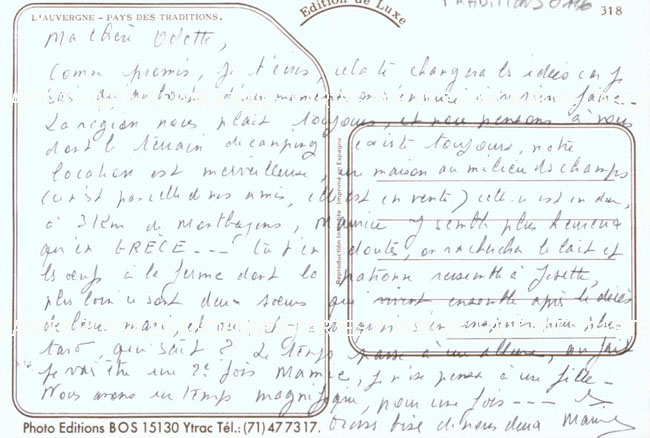 L'AUVERGNE - PAYS DES TRADITIONS.
Edition de Luxe
TRADITIONS
318
Ma chère Odette,
Comme promis, je t'écris, cela te changera les idées car je
sais qu'au bout d'un moment on s'ennuie à ne rien faire.
La région nous plait toujours, et nous pensons à vous
dont le terrain de camping existe toujours, notre
location est merveilleuse, maison au milieu des champs
(ce n'est pas celle de nos amis, elle est en vente) celle-ci est
à 3 Km de Maurice y semble plus heureux
qu'en GRÈCE --- tu t'en doutes, on va chercher le lait et
les oeufs à la ferme dont la patronne ressemble à
plus loin ce sont deux soeurs qui vivent ensemble après le décès
de leurs maris, et
tard qui sait ? Le temps passe à une allure, au fait
je vais être une 2e fois Mamie, je pense à une fille.
Nous avons un temps magnifique, pour une fois ---
Grosse bise de nous deux
Reproduction Interdite Imprimé en Espagne
Photo Editions BOS 15130 Ytrac Tél.: (71) 47 7317.